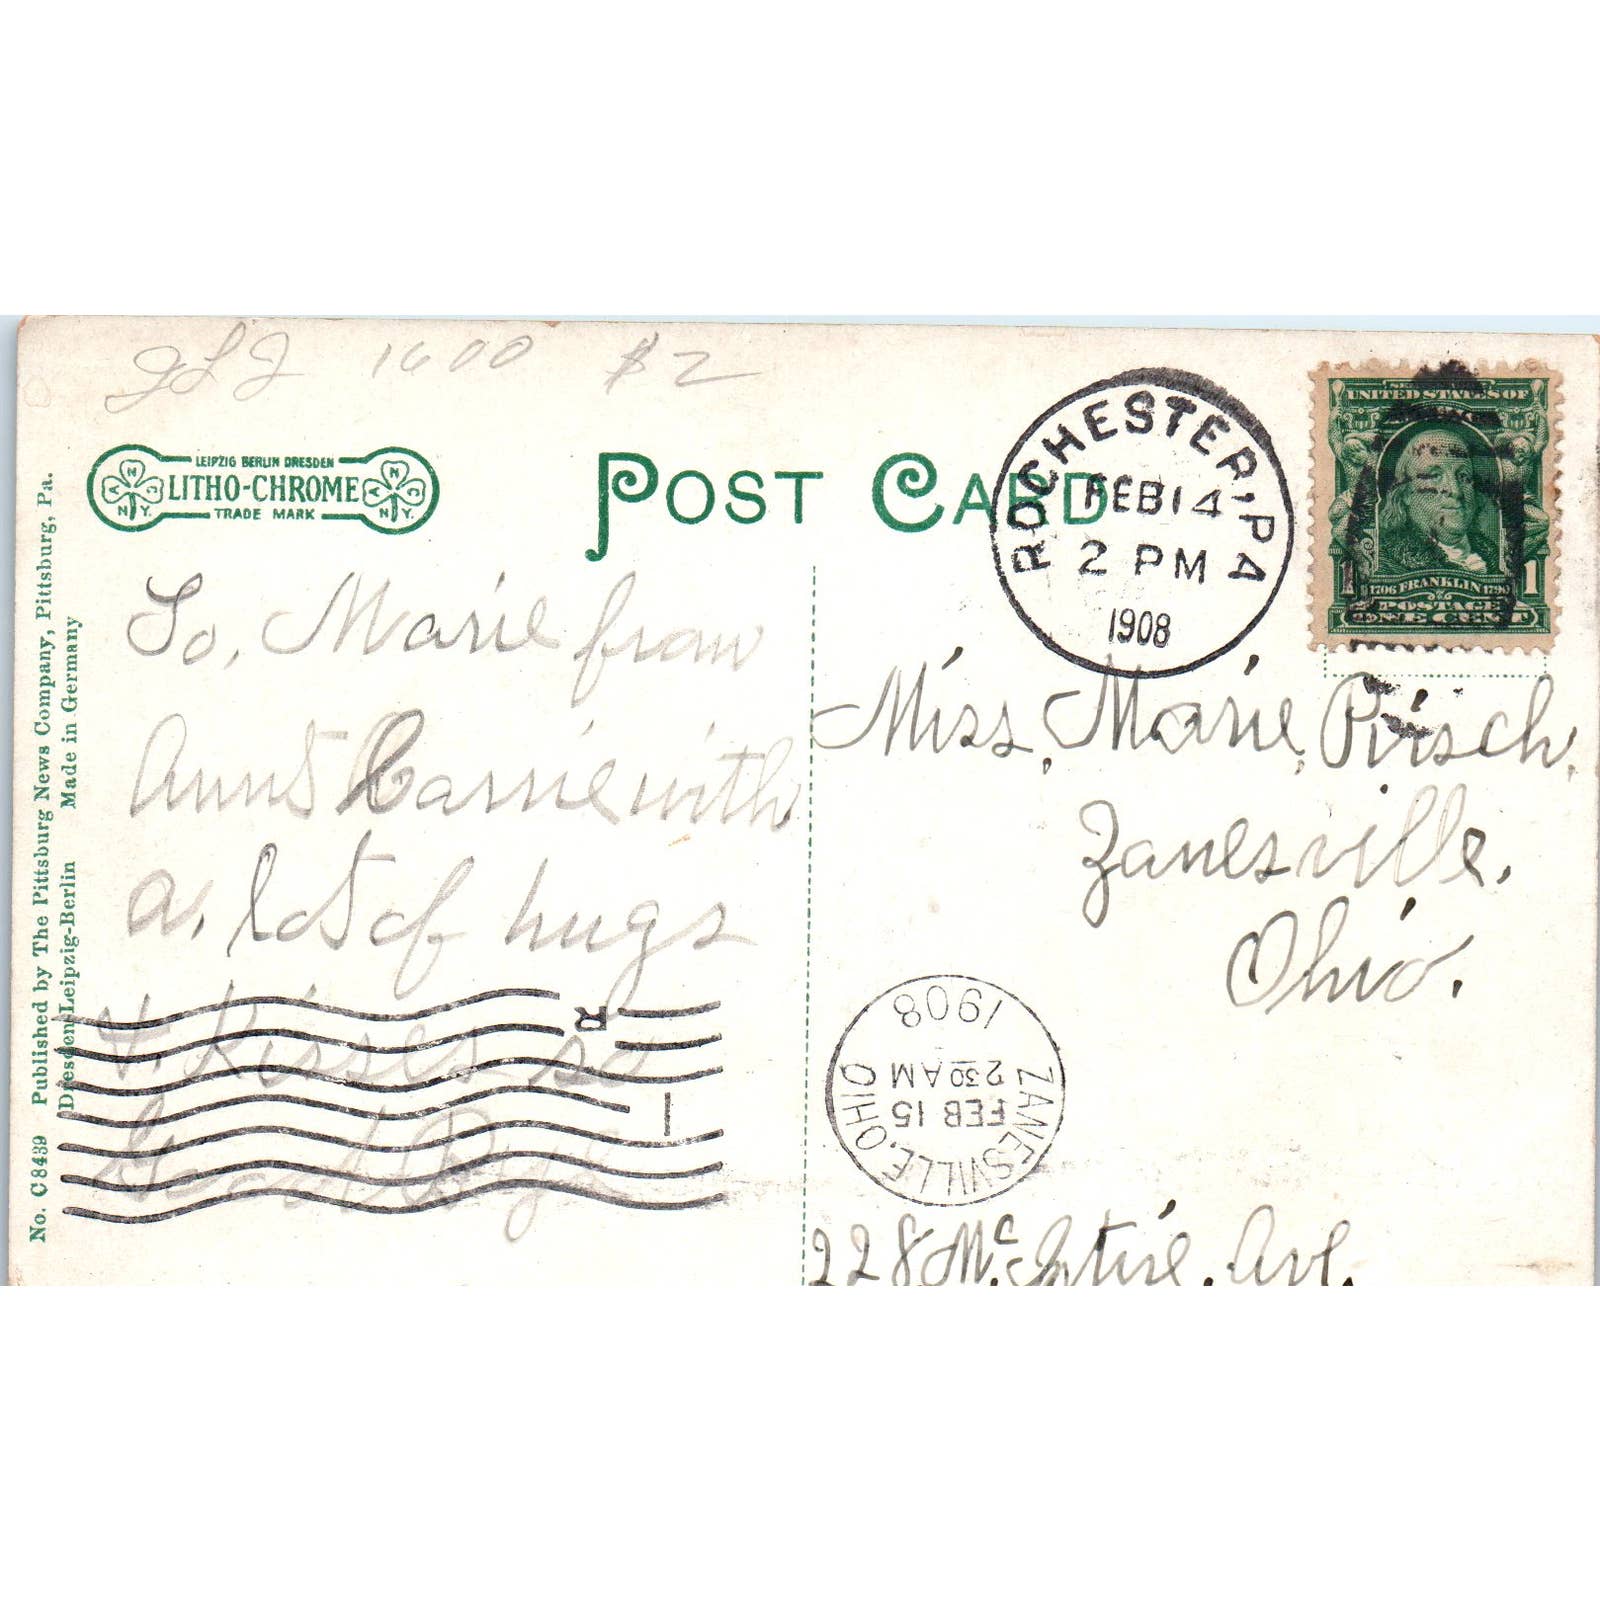 1600 $2
LEIPZIG BERLIN DRESDEN
LITHO-CHROME
TRADE MARK
POST CARD
ROCHESTER, PA.
FEB 14
2 PM
1908
SERIES 1902
UNITED STATES OF
1706 FRANKLIN 1790
POSTAGE
1 ONE CENT 1
No. C 8439 Published by The Pittsburg News Company, Pittsburg, Pa.
Dresden-Leipzig-Berlin Made in Germany
To, Marie from
Aunt Carrie with
a, lot of hugs
+ Kisses so
Good Bye
R
1
Miss, Marie, Pirsch,
Zanesville,
Ohio.
ZANESVILLE, OHIO
FEB 15
2 30 AM
1908
228 Mc.Intire, Ave,